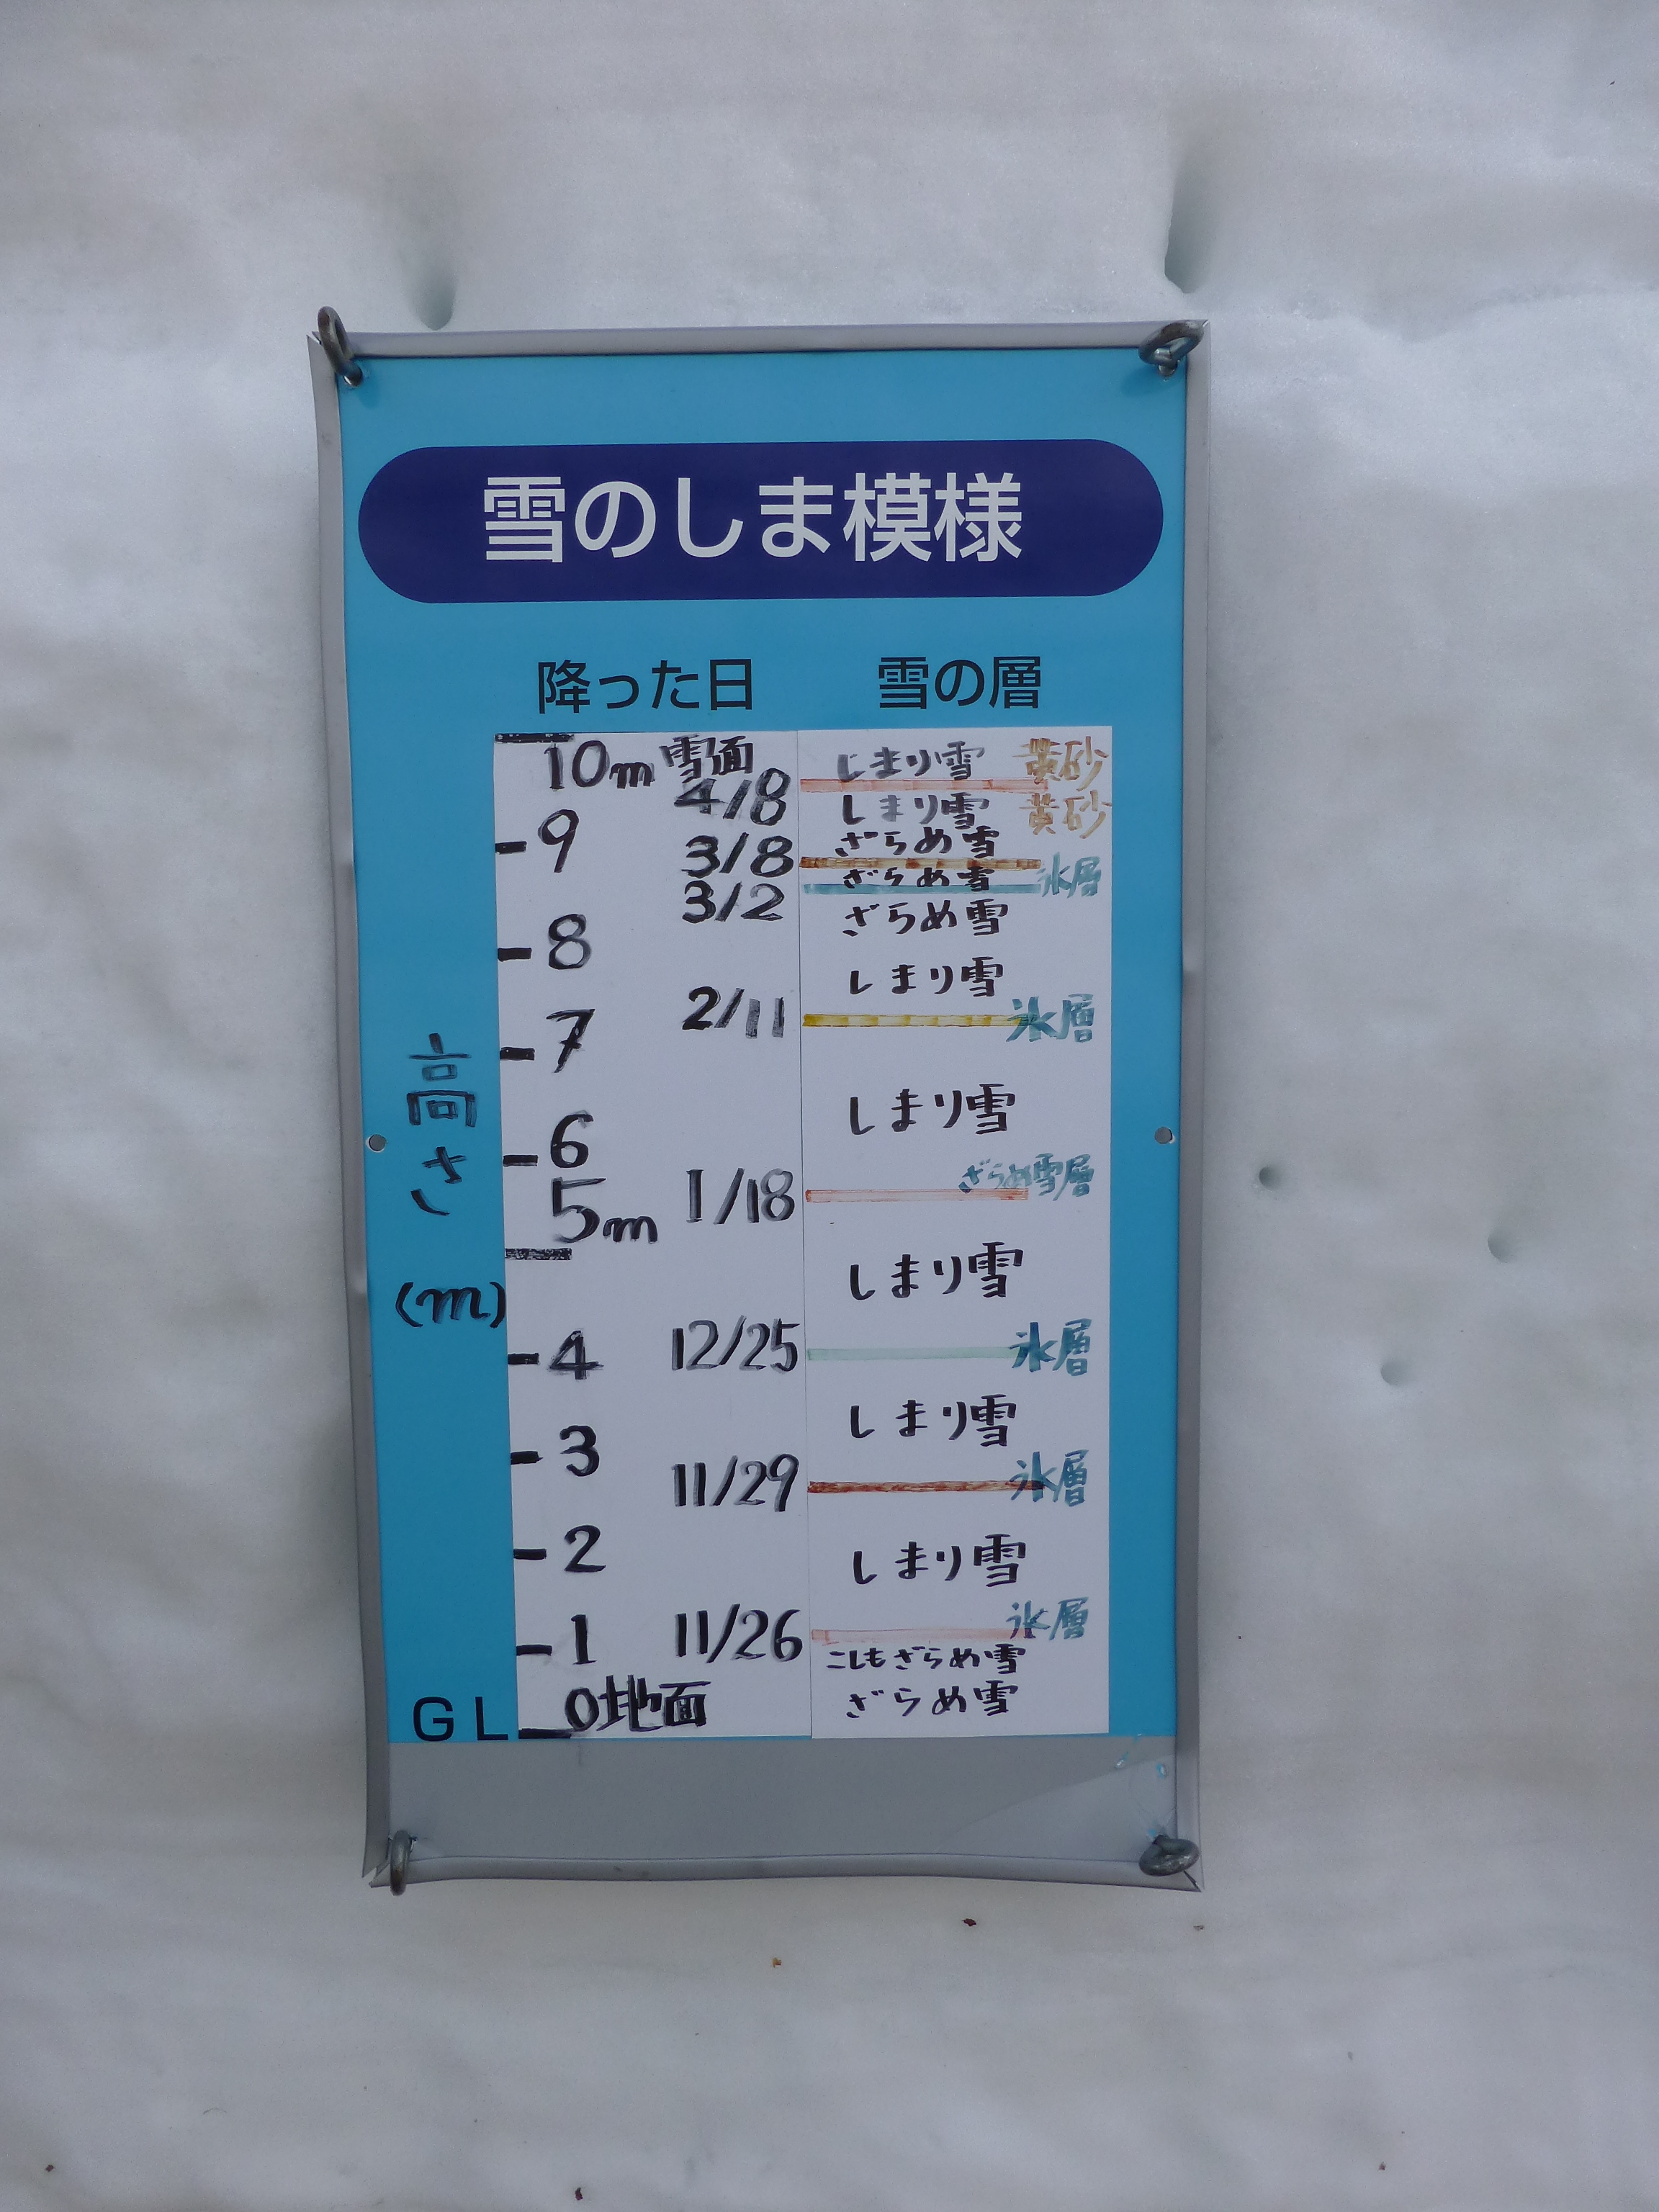 雪のしま模様
降った日 雪の層
10m 雪面 しまり雪 黄砂
4/8 しまり雪 黄砂
9 ざらめ雪
3/8
ざらめ雪 氷層
3/2 ざらめ雪
8 しまり雪
2/11 氷層
7
しまり雪
6 ざらめ雪層
5m 1/18
しまり雪
4 12/25 氷層
しまり雪
3 11/29 氷層
2 しまり雪
1 11/26 氷層
こしもざらめ雪
0地面 ざらめ雪
GL
高さ
(m)